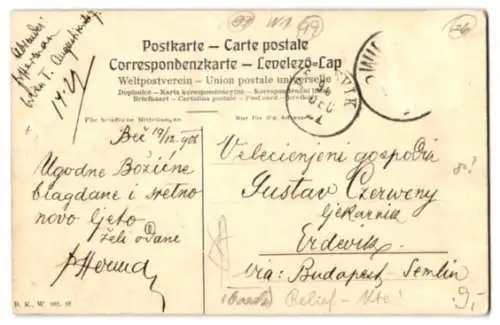 Postkarte — Carte postale
Correspondenzkarte — Levelező-Lap
Weltpostverein — Union postale universelle
Dopisnice — Karta korespondencyjna — Korespondenční lístek
Briefkaart — Cartolina postale — Postcard — Brefkort
Für briefliche Mittheilungen.
Nur für die Adresse.
Beč 19/12 908
Ugodne Božićne
blagdane i sretno
novo ljeto
želi odani
Velecienjeni gospodin
Gustav Czerweny
ljekarnik
Erdevik
via: Budapest - Semlin
Relief - Kte!
9,-
B. K. W.